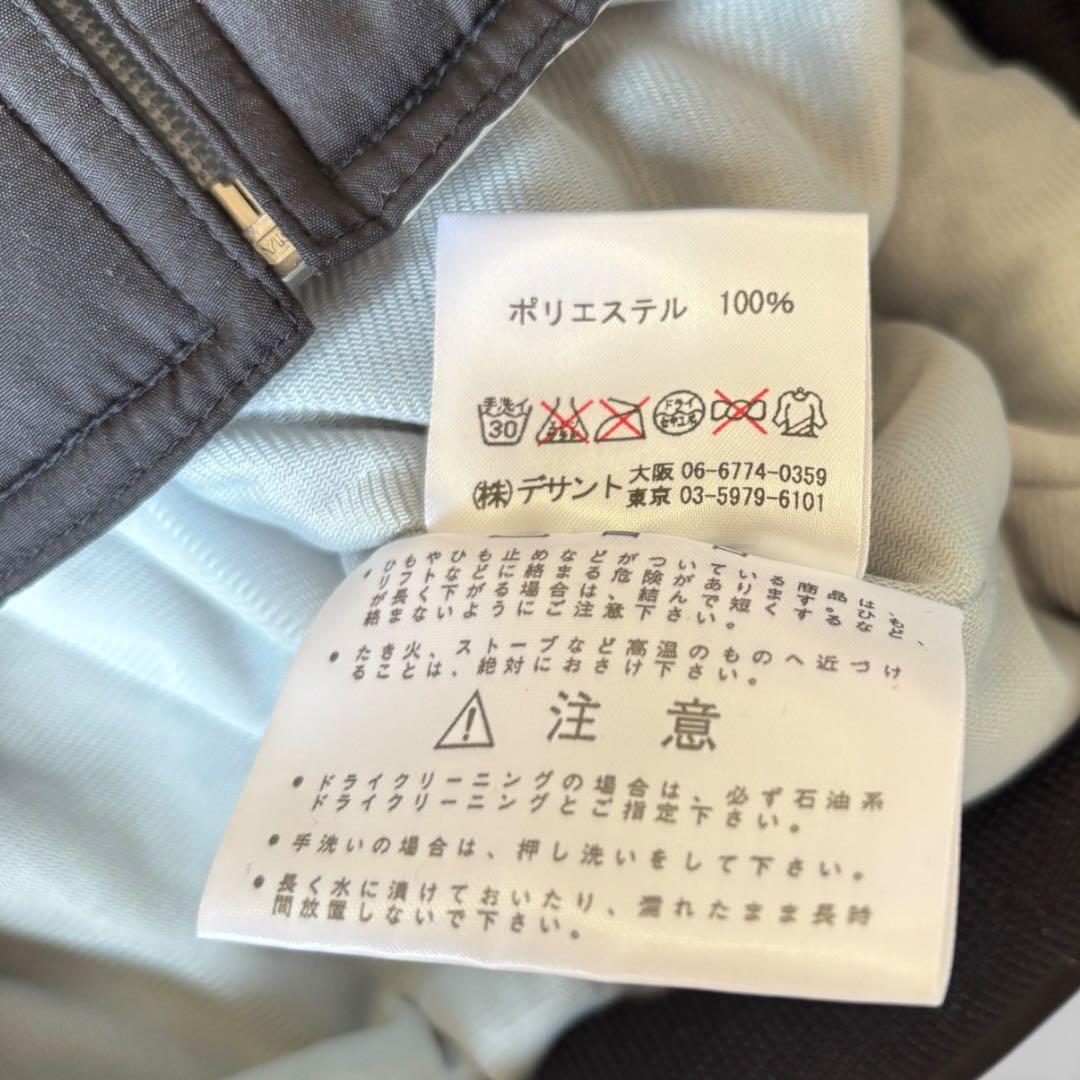 ポリエステル 100%
手洗イ 30 ドライ セキユ系
㈱デサント 大阪 06-6774-0359
東京 03-5979-6101
・ひもやひも止めなどがついている商品は、
リフトなどに絡まる危険があります。ひも
が長く下がる場合は、結んで短くするなど、
絡まないようにご注意下さい。
・たき火、ストーブなど高温のものへ近づけ
ることは、絶対におさけ下さい。
注意
・ドライクリーニングの場合は、必ず石油系
ドライクリーニングとご指定下さい。
・手洗いの場合は、押し洗いをして下さい。
・長く水に漬けておいたり、濡れたまま長時
間放置しないで下さい。